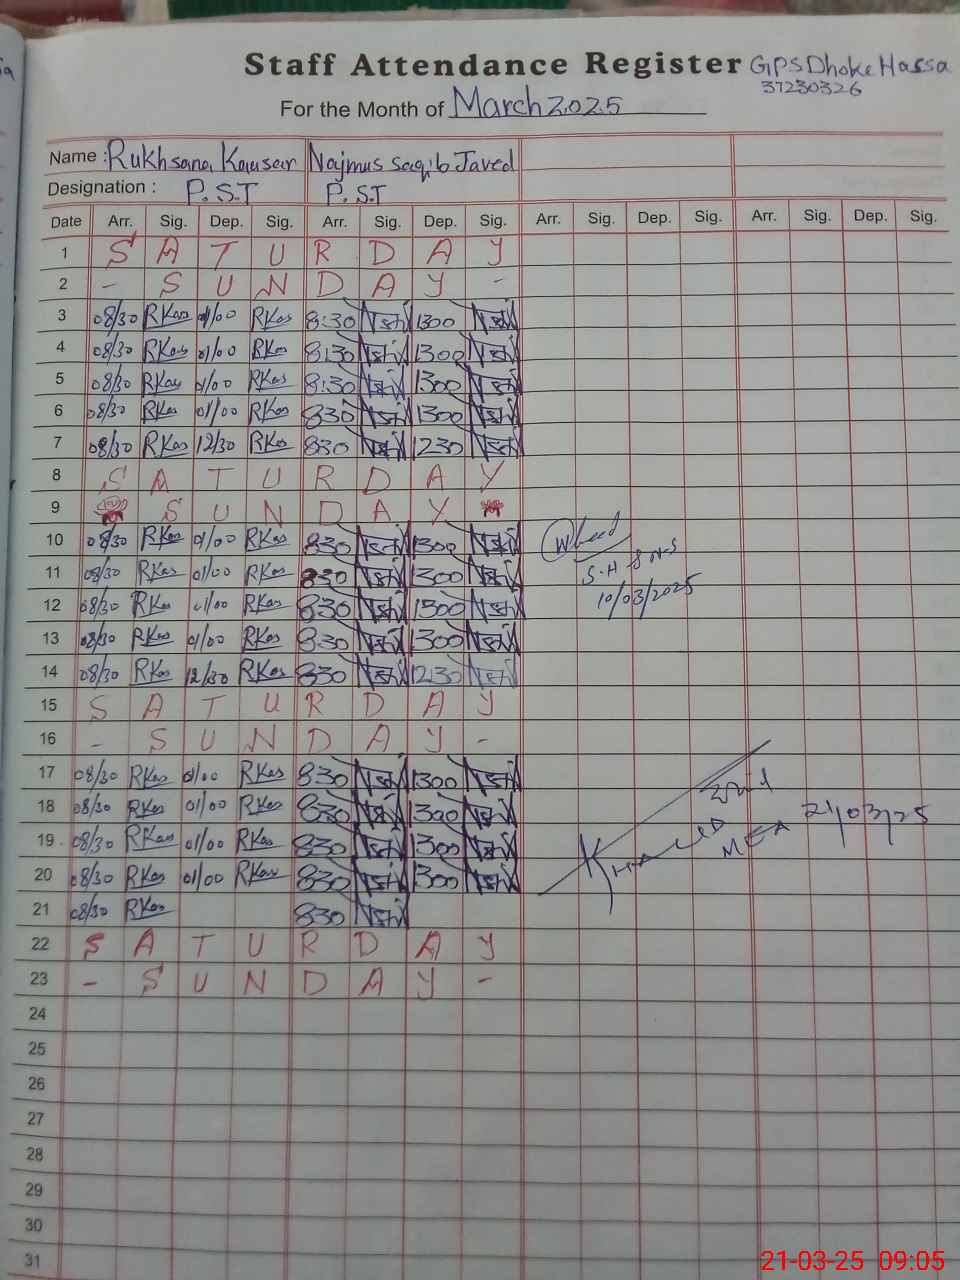 Staff Attendance Register GPS Dhoke Hassa
37230326
For the Month of March 2025
Name : Rukhsana Kausar Najmus Saqib Javed
Designation : P.S.T P.S.T
Date Arr. Sig. Dep. Sig. Arr. Sig. Dep. Sig. Arr. Sig. Dep. Sig. Arr. Sig. Dep. Sig.
1 S A T U R D A Y
2 - S U N D A Y -
3 08/30 RKas 01/00 RKas 8:30 1300
4 08/30 RKas 01/00 RKas 8:30 1300
5 08/30 RKas 01/00 RKas 8:30 1300
6 08/30 RKas 01/00 RKas 830 1300
7 08/30 RKas 12/30 RKas 830 1230
8 S A T U R D A Y
9 S U N D A Y
10 08/30 RKas 01/00 RKas 830 1300
11 08/30 RKas 01/00 RKas 830 1300
10/03/2025
12 08/30 RKas 01/00 RKas 830 1300
13 08/30 RKas 01/00 RKas 830 1300
14 08/30 RKas 12/30 RKas 830 1230
15 S A T U R D A Y
16 - S U N D A Y -
17 08/30 RKas 01/00 RKas 830 1300
18 08/30 RKas 01/00 RKas 830 1300
19 08/30 RKas 01/00 RKas 830 1300 MEA 21/03/25
20 08/30 RKas 01/00 RKas 830 1300
21 08/30 RKas 830
22 S A T U R D A Y
23 - S U N D A Y -
24
25
26
27
28
29
30
31
21-03-25 09:05